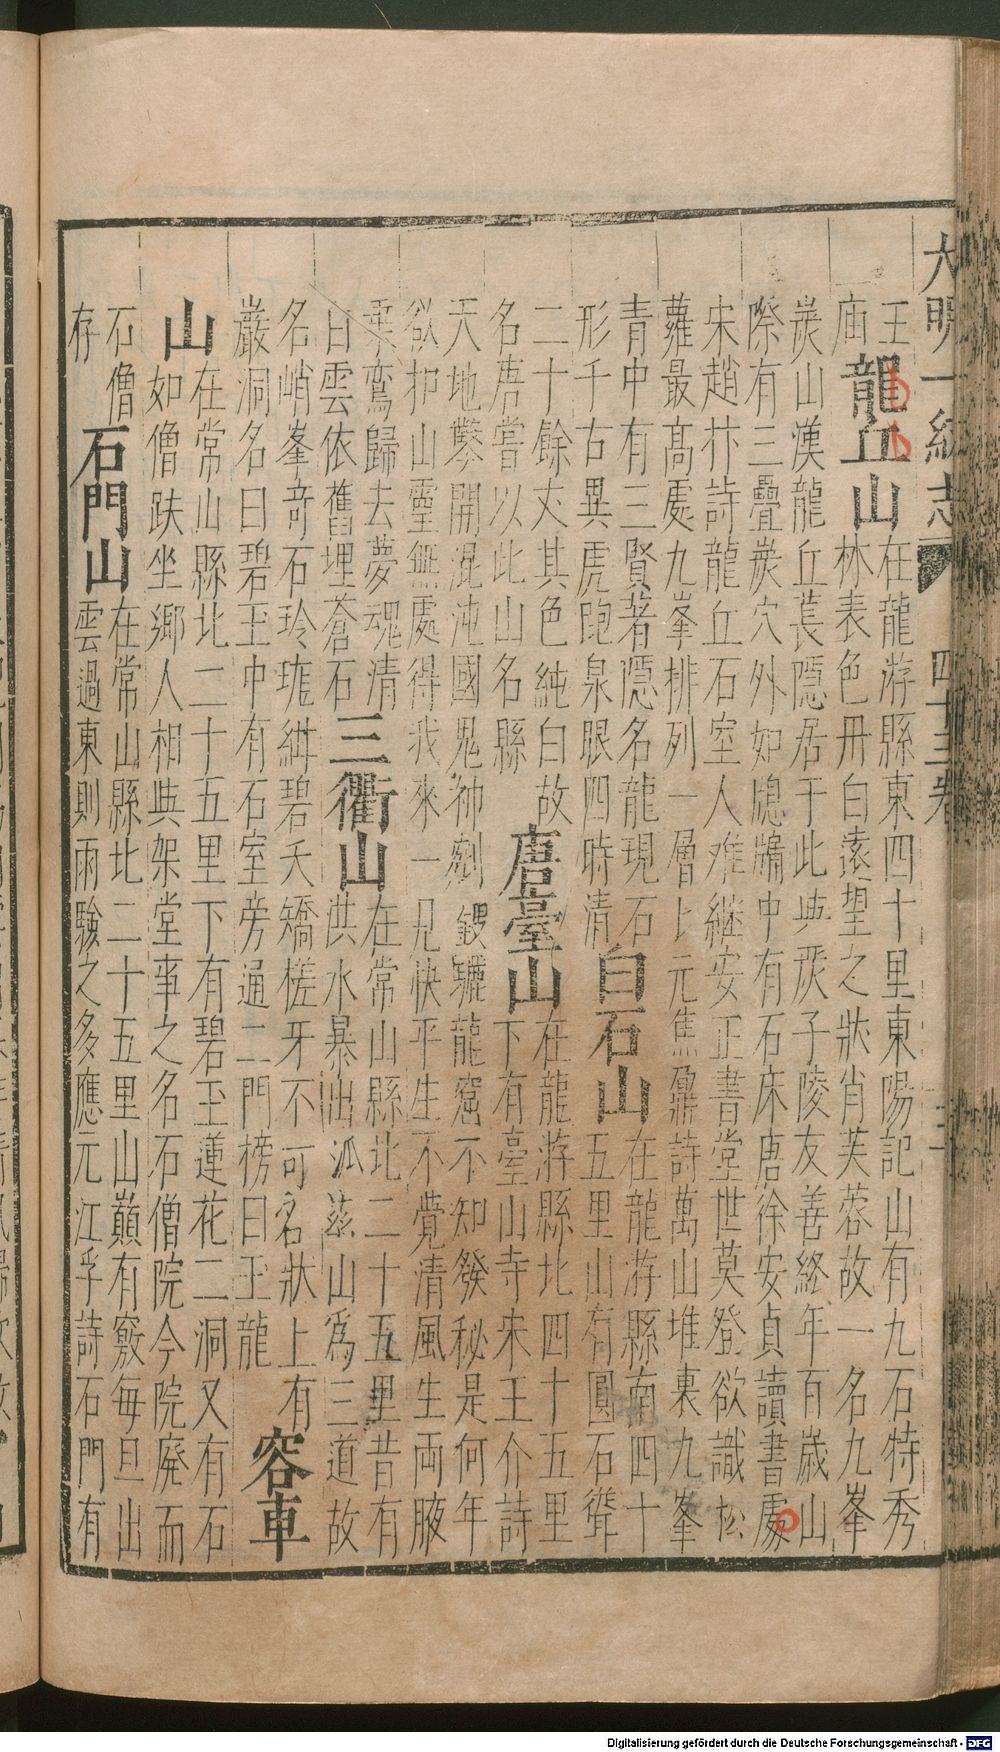 大明一統志 四十三卷
王 在龍游縣東四十里東陽記山有九石特秀
廟 龍丘山 林表色丹白遠望之狀肖芙蓉故一名九峯
炭山漢龍丘萇隱居于此與嚴子陵友善終年百歲山
際有三疊炭穴外如牕牖中有石床唐徐安貞讀書處
宋趙抃詩龍丘石室人难継安正書堂世莫登欲識松
蘿最高處九峯排列一層上元焦鼐詩萬山堆裏九峯
青中有三賢著隱名龍現石 白石山 在龍游縣南四十
形千古異虎跑泉眼四時清 五里山有圓石聳
二十餘丈其色純白故 唐臺山 在龍游縣北四十五里
名唐嘗以此山名縣 下有臺山寺宋王介詩
天地㩳開混沌國鬼神剜鍐驪龍窟不知發秘是何年
欲扣山靈無處得我來一見快平生不覺清風生両腋
乘鸞歸去夢魂清 三衢山 在常山縣北二十五里昔有
白雲依舊埋蒼石 洪水暴出派茲山爲三道故
名峭峯竒石玲瓏紺碧夭矯槎牙不可名狀上有
巖洞名曰碧玉中有石室旁通二門榜曰玉龍 容車
山 在常山縣北二十五里下有碧玉蓮花二洞又有石
如僧趺坐鄉人相與架堂事之名石僧院今院廢而
石僧 石門山 在常山縣北二十五里山巔有竅每旦出
存 雲過東則雨驗之多應元江孚詩石門有
Digitalisierung gefördert durch die Deutsche Forschungsgemeinschaft - DFG